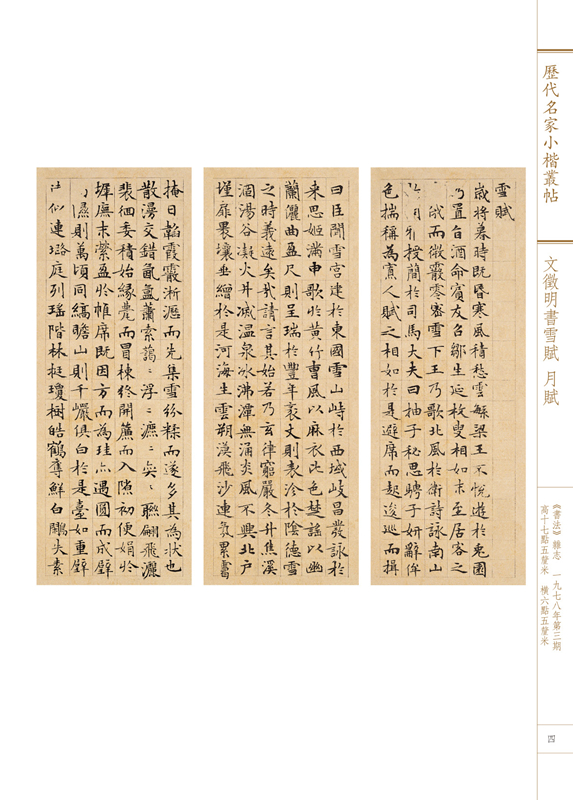 歷代名家小楷叢帖
文徵明書雪賦 月賦
《書法》雜志 一九七八年第三期
高十七點五釐米 橫六點五釐米
四
雪賦
歲將暮時既昏寒風積愁雲繇梁王不悅遊於兔園
乃置旨酒命賓友召鄒生延枚叟相如末至居客之
俄而微霰零密雪下王乃歌北風於衛詩詠南山
授簡於司馬大夫曰抽子秘思騁子妍辭侔
色揣稱為寡人賦之相如於是避席而起逡巡而揖
曰臣聞雪宮建於東國雪山峙於西域岐昌發詠於
來思姬滿申歌於黃竹曹風以麻衣比色楚謠以幽
蘭儷曲盈尺則呈瑞於豐年袤丈則表沴於陰德雪
之時義遠矣哉請言其始若乃玄律窮嚴冬升焦溪
涸湯谷凝火井滅溫泉冰沸潭無涌炎風不興北戶
墐扉裸壤垂繒於是河海生雲朔漠飛沙連氛累靄
掩日韜霞霰淅瀝而先集雪紛糅而遂多其為狀也
散漫交錯氛氳蕭索藹〻浮〻瀌〻奕〻聯翩飛灑
裴徊委積始緣甍而冒棟終開簾而入隙初便娟於
墀廡末縈盈於帷席既因方而為珪亦遇圓而成璧
隰則萬頃同縞瞻山則千巖俱白於是臺如重璧
似連璐庭列瑤階林挺瓊樹皓鶴奪鮮白鷳失素